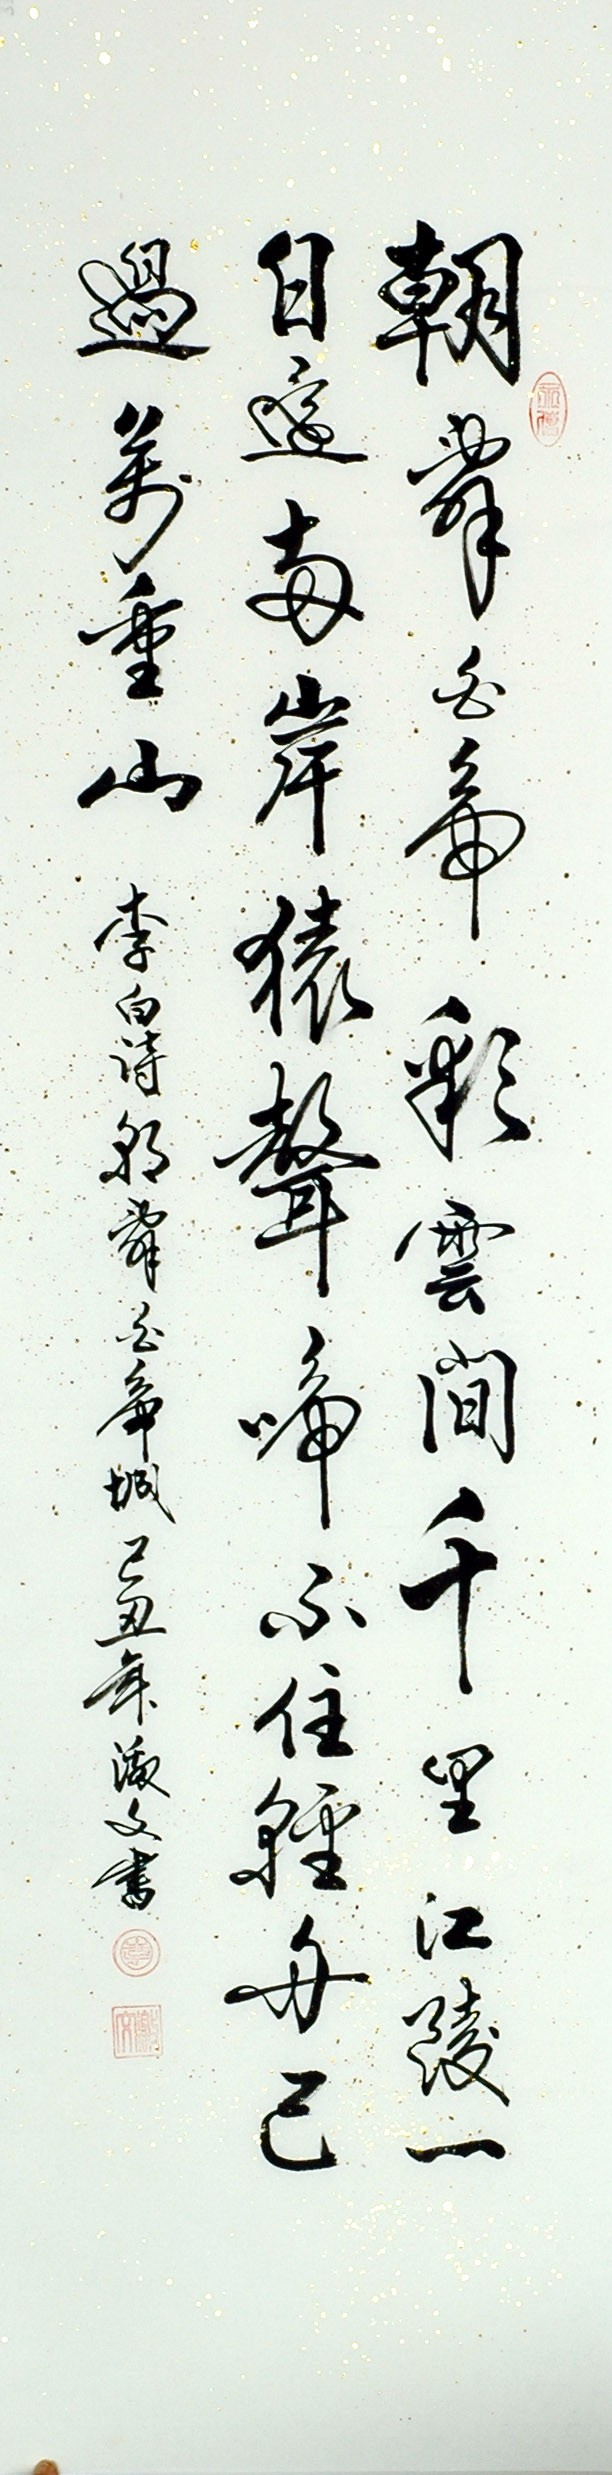 朝辭白帝彩雲間千里江陵一
日還兩岸猿聲啼不住輕舟已
過萬重山
李白詩朝辭白帝城己丑年澂文書